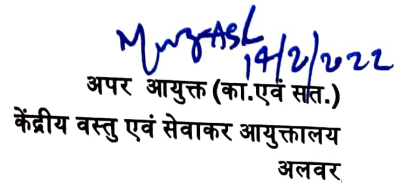 14/2/2022
अपर आयुक्त (का.एवं सत.)
केंद्रीय वस्तु एवं सेवाकर आयुक्तालय
अलवर